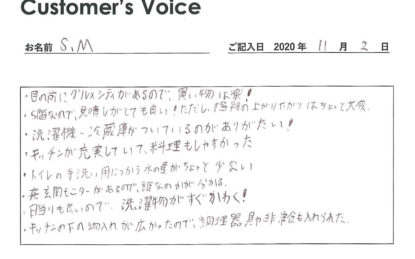 Customer's Voice
お名前 S.M ご記入日 2020年 11月 2日
・目の前にグルメシティがあるので、買い物は楽!
・5階なので、見晴しがとても良い!ただし、階段の上がり下がりはちょっと大変.
・洗濯機、冷蔵庫がついているのがありがたい!
・キッチンが充実していて、料理もしやすかった
・トイレの手洗い用につかう水の量がちょっと少ない
・玄関モニターがあるので、誰なのかが分かる.
・日当りも良いので、洗濯物がすぐかわく!
・キッチンの下の物入れが広かったので、調理器具や非常食も入れられた.